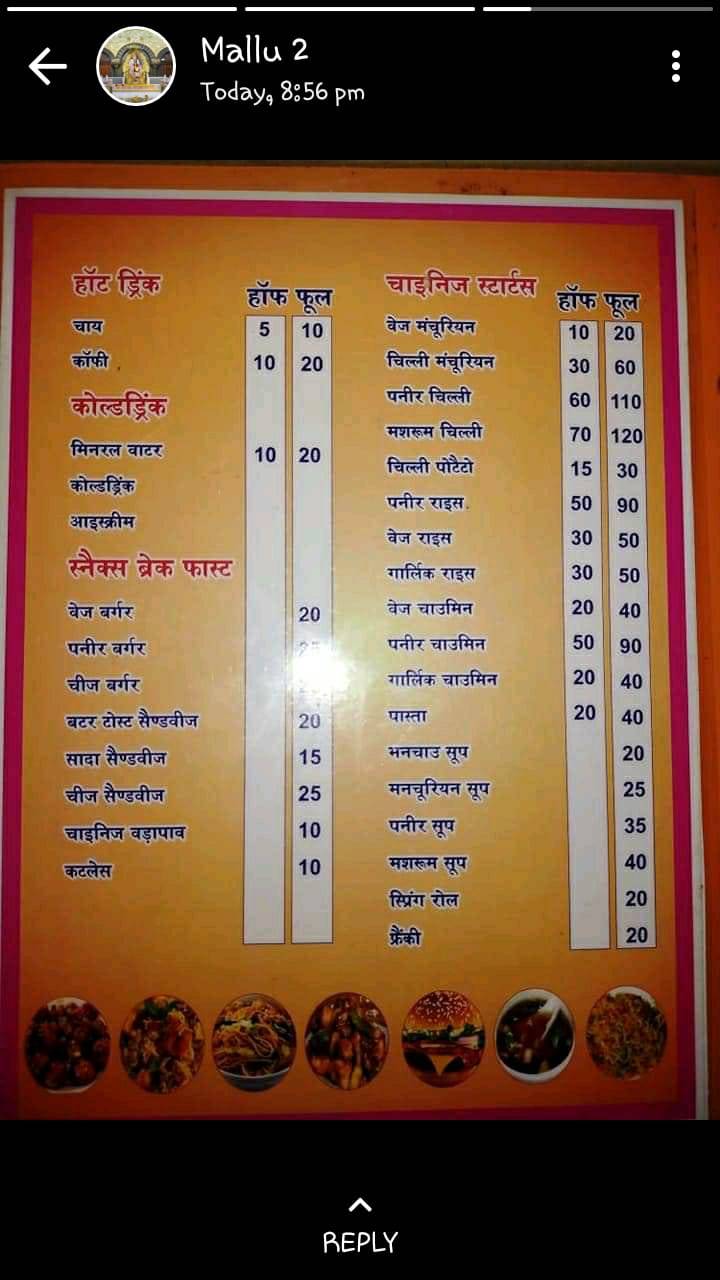 Mallu 2
Today, 8:56 pm
हॉट ड्रिंक
हॉफ फूल
चाय 5 10
कॉफी 10 20
कोल्डड्रिंक
मिनरल वाटर 10 20
कोल्डड्रिंक
आइस्क्रीम
स्नैक्स ब्रेक फास्ट
वेज बर्गर 20
पनीर बर्गर
चीज बर्गर
बटर टोस्ट सैण्डवीज 20
सादा सैण्डवीज 15
चीज सैण्डवीज 25
चाइनिज वड़ापाव 10
कटलेस 10
चाइनिज स्टार्टस
हॉफ फूल
वेज मंचूरियन 10 20
चिल्ली मंचूरियन 30 60
पनीर चिल्ली 60 110
मशरूम चिल्ली 70 120
चिल्ली पोटैटो 15 30
पनीर राइस 50 90
वेज राइस 30 50
गार्लिक राइस 30 50
वेज चाउमिन 20 40
पनीर चाउमिन 50 90
गार्लिक चाउमिन 20 40
पास्ता 20 40
मनचाउ सूप 20
मनचूरियन सूप 25
पनीर सूप 35
मशरूम सूप 40
स्प्रिंग रोल 20
फ्रैंकी 20
REPLY